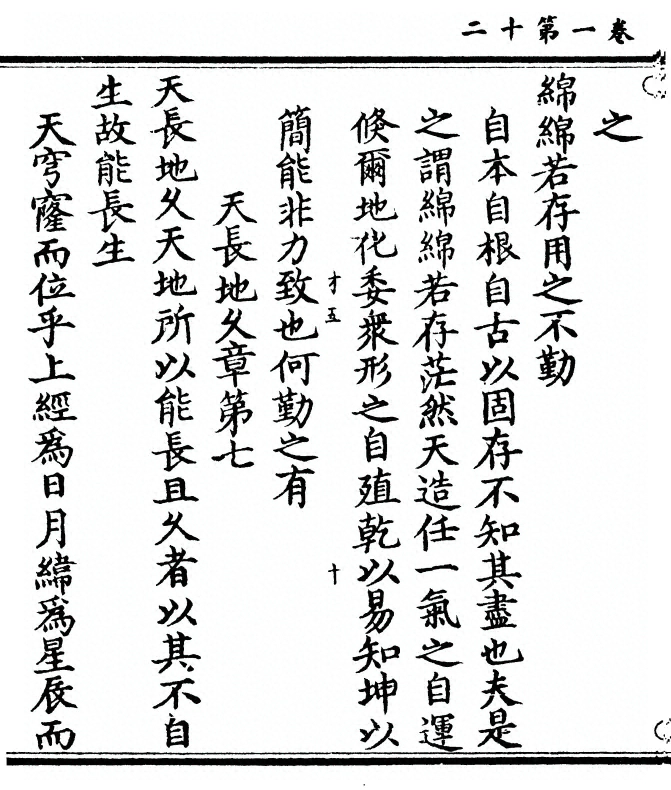 卷一第十二
之
綿綿若存用之不勤
自本自根自古以固存不知其盡也夫是
之謂綿綿若存茫然天造任一氣之自運
倏爾地化委衆形之自殖乾以易知坤以
才五 十
簡能非力致也何勤之有
天長地久章第七
天長地久天地所以能長且久者以其不自
生故能長生
天穹窿而位乎上經爲日月緯爲星辰而